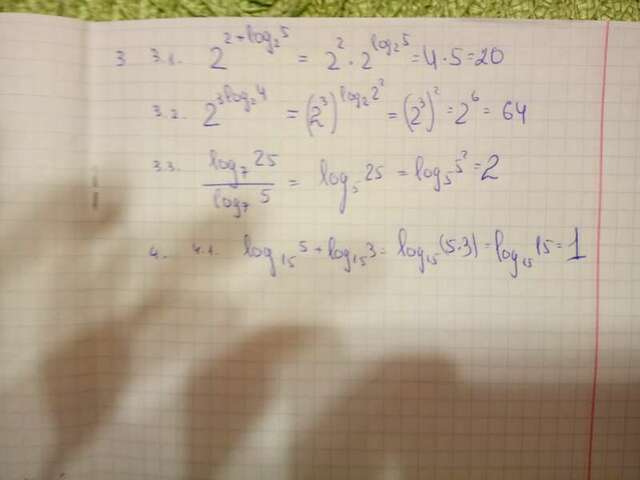 3 3.1. 2^{2+log_2 5} = 2^2 · 2^{log_2 5} = 4 · 5 = 20
3.2. 2^{3log_2 4} = (2^3)^{log_2 2^2} = (2^3)^2 = 2^6 = 64
3.3. \frac{log_7 25}{log_7 5} = log_5 25 = log_5 5^2 = 2
4. 4.1. log_{15} 5 + log_{15} 3 = log_{15} (5·3) = log_{15} 15 = 1